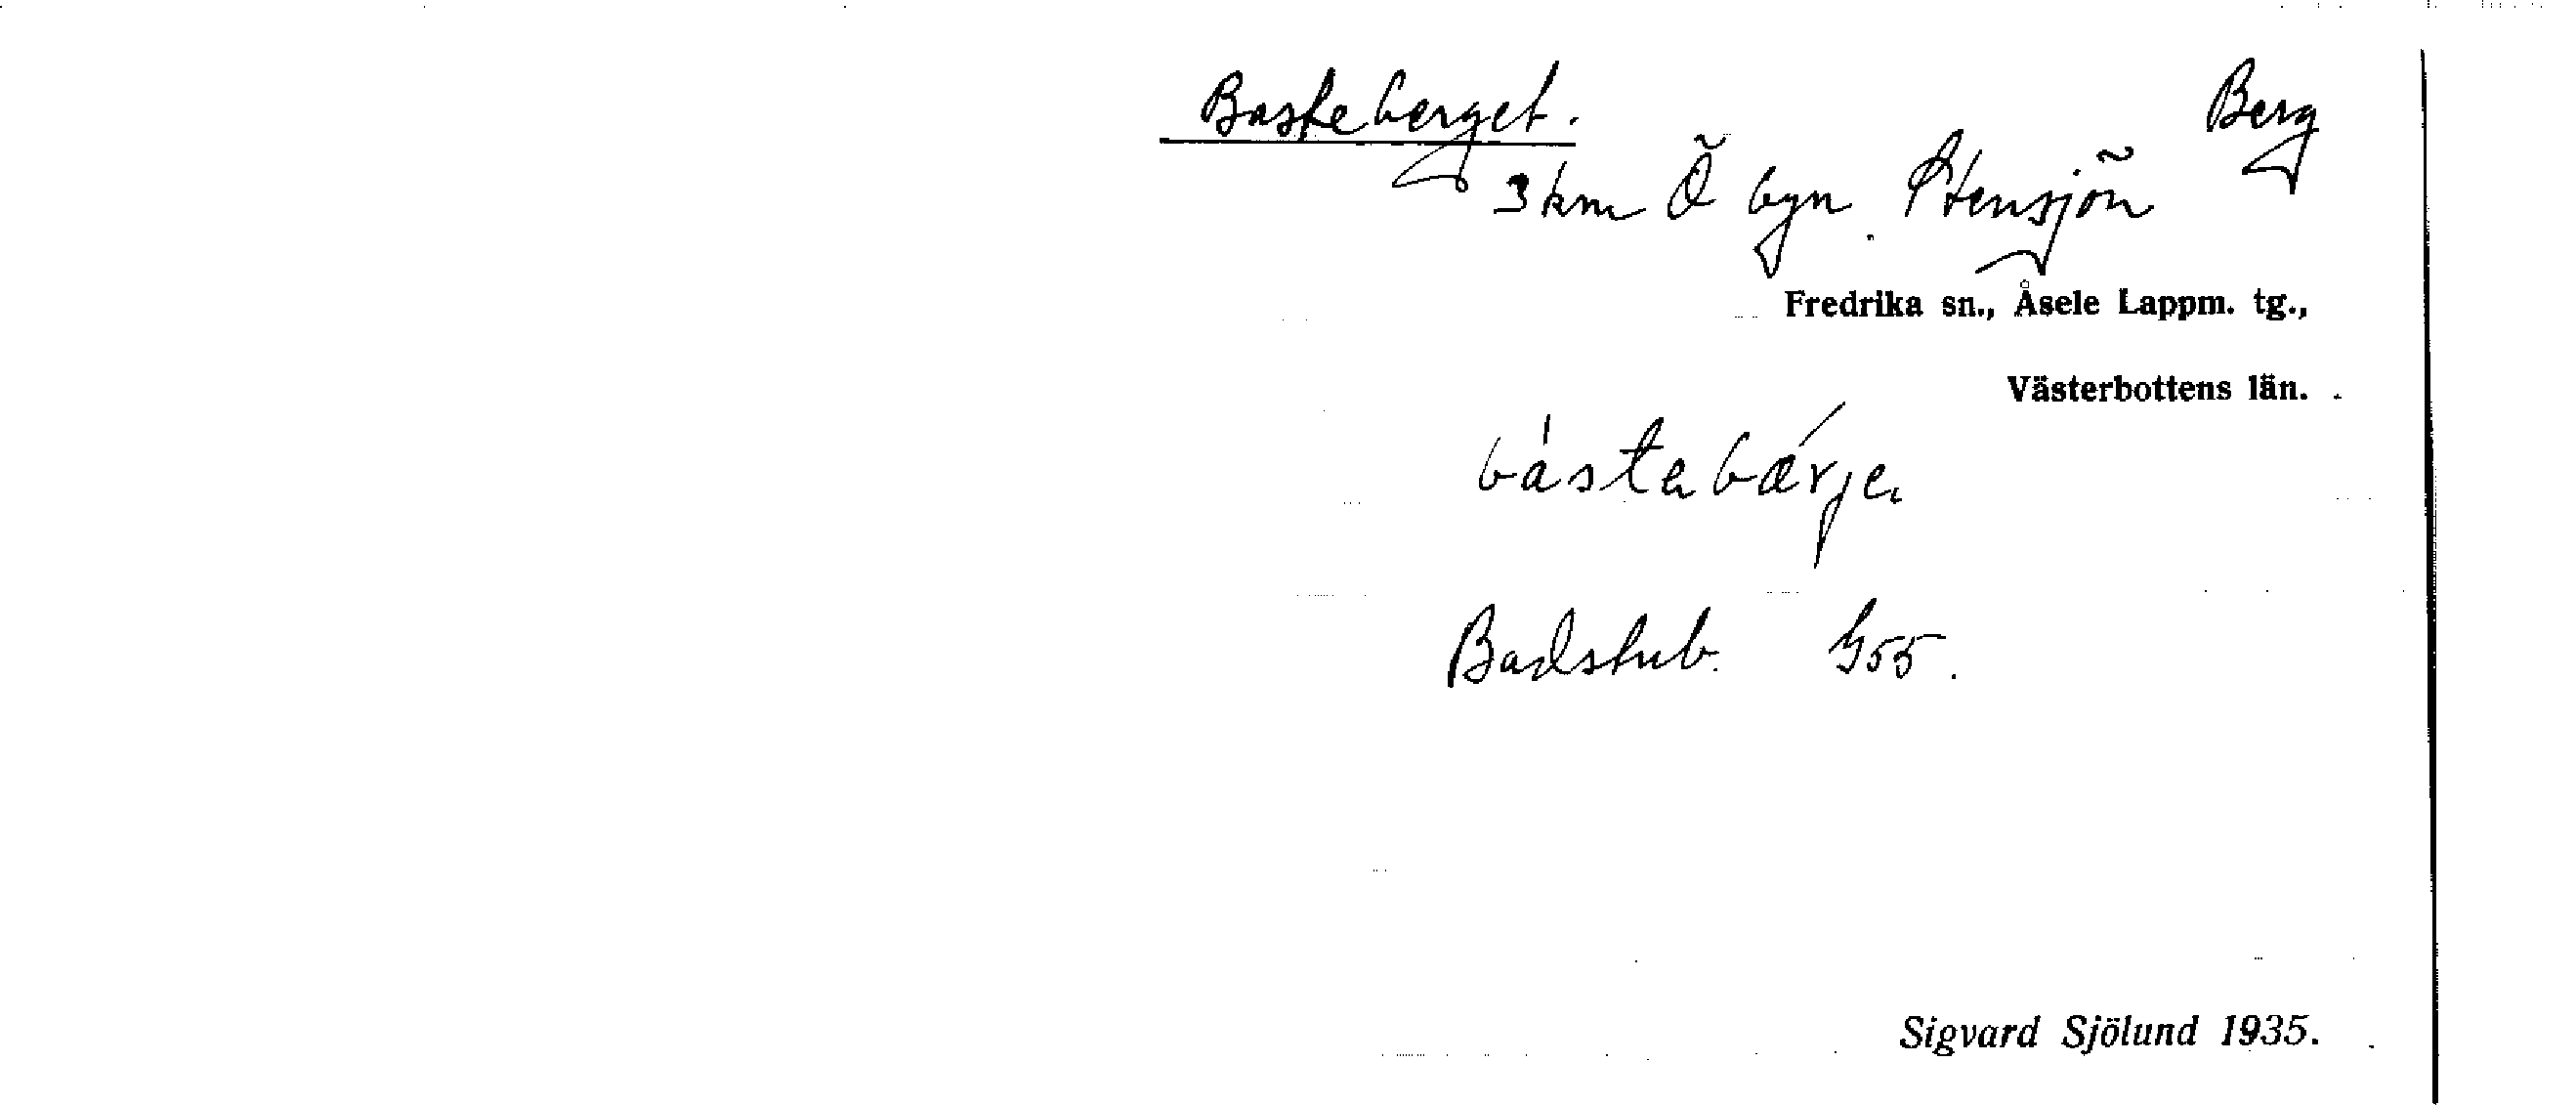 Basteberget. Berg
3 km Ö byn Stensjön
Fredrika sn., Åsele Lappm. tg.,
Västerbottens län.
bástabærje
Badstub. G55.
Sigvard Sjölund 1935.